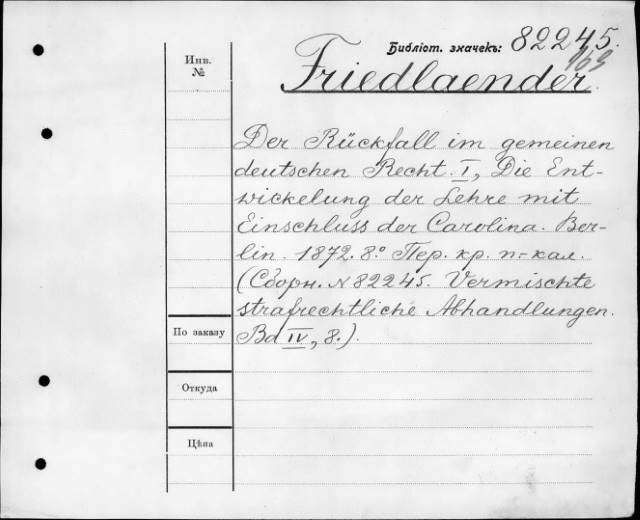 Библіот. значекъ: 82245.
169
Инв.
№
Friedlaender.
Der Rückfall im gemeinen
deutschen Recht. I, Die Ent-
wickelung der Lehre mit
Einschluss der Carolina. Ber-
lin. 1872. 8.° Пер. кр. п.-кал.
(Сборн. N 82245. Vermischte
strafrechtliche Abhandlungen.
Bd IV, 8.).
По заказу
Откуда
Цѣна